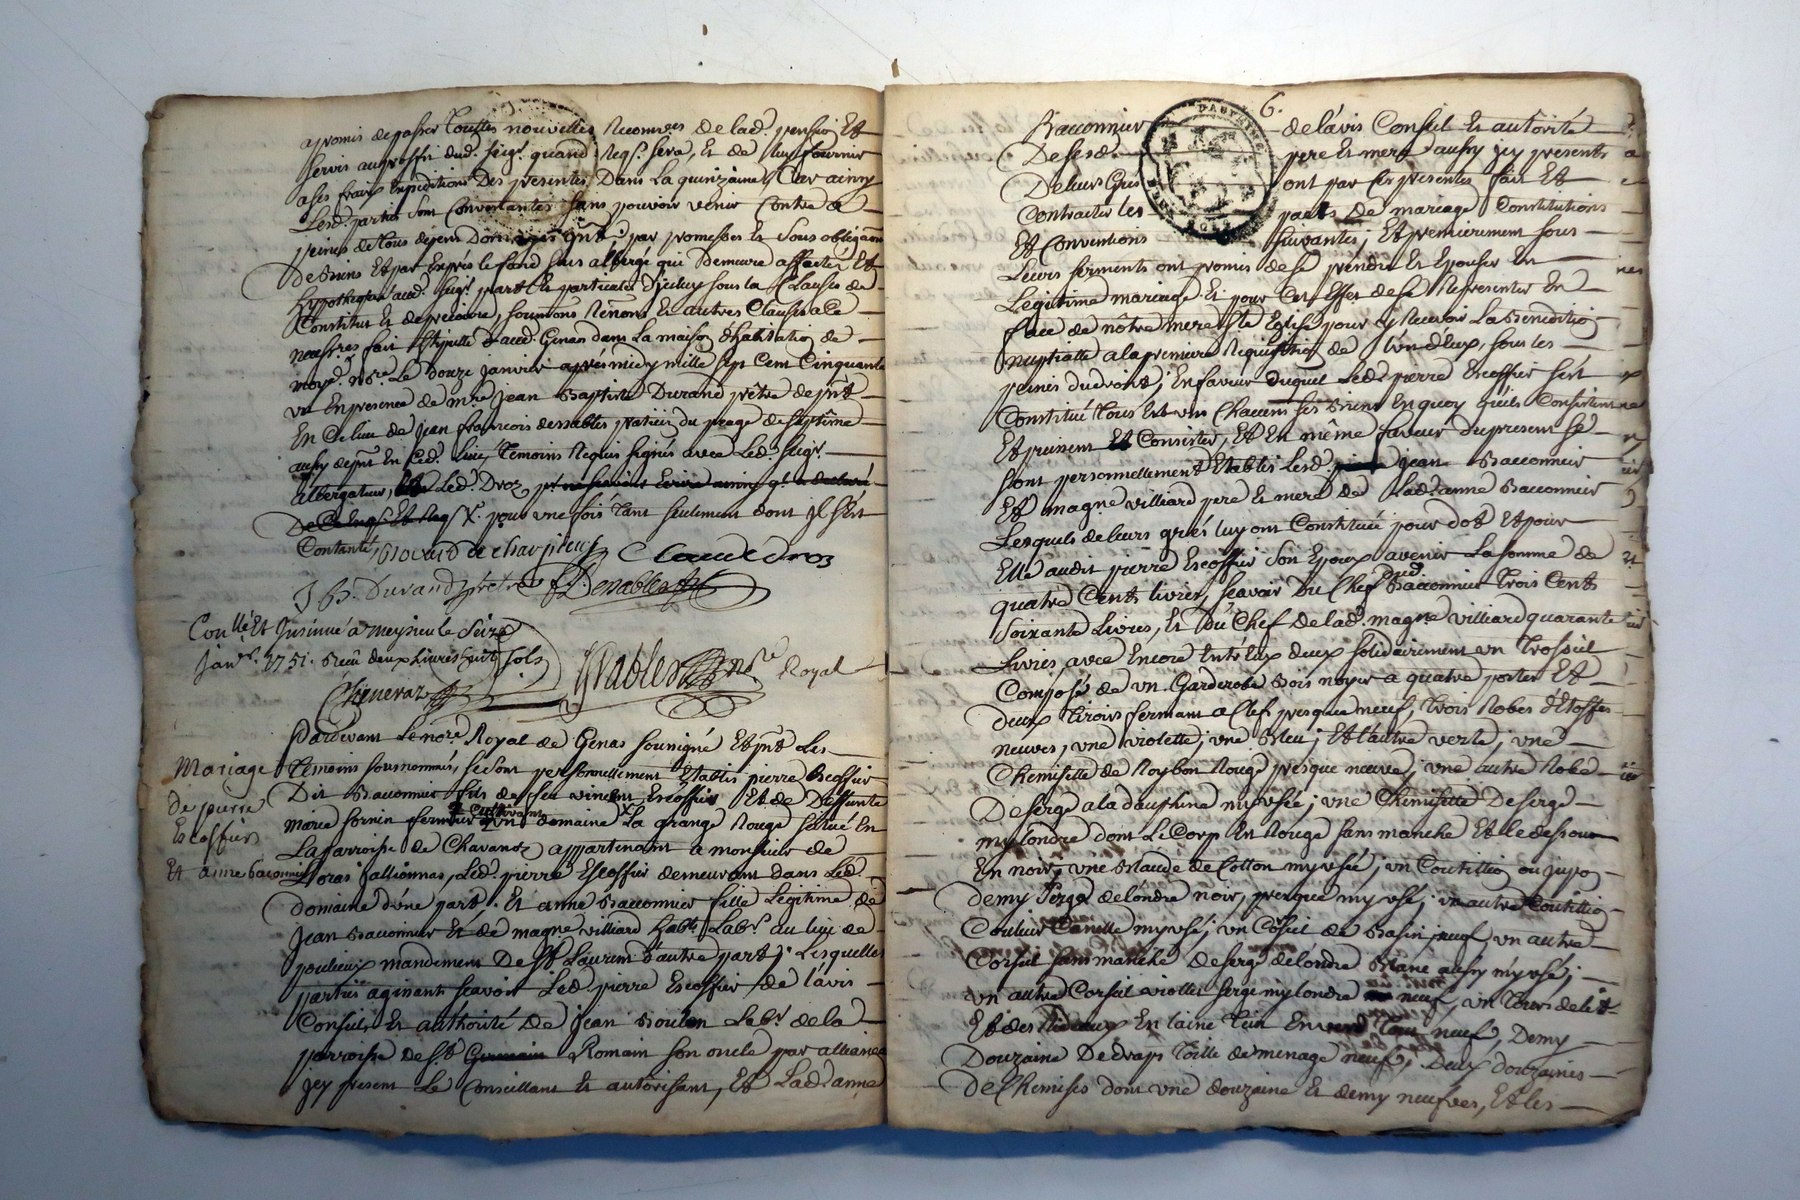 a promis de passer touttes nouvelles reconn.ces de lad. pension Et
servis au proffit dud. seigr. quand req.s sera, Et de luy fournir
a ses fraix Expeditions Des presentes Dans la quinzaine, Car ainsy
Lesd. parties sont Convenantes sans pouvoir venir Contre a
peines de tous depens Dommages Int.; par promesses Et sous obligaōn
De Biens Et par Exprès le fond sus albergé qui Demeure affecté Et
hypothequé aud. seigr. sous la Clause de
Constitut Et de precaire, soumiōns Renōns Et autres Clauses a Ce
necess.res fait Et stipullé aud. Genas dans La maison d'habitation de
moyd. no.re Le douze janvier après midy mille sept Cent Cinquante
un En presence de m.re Jean Baptiste Durand prêtre de p.nt
En Ce lieu de Jean francois desrables du peage de
aussy de p.nt En Ced. lieu, temoins Requis signés avec Led. seigr.
albergateur, Led. Droz
X. pour une fois tant seulement dont Il s'est
Contanté, de Charpieux Claude Droz
J. B. Durand prêtre Desrables
Con.llé Et Insinué a Meysieu le Seize
Janv.r 1751. Reçu deux Livres huit sols
no.re Royal
Pardevant Le no.re Royal de Genas sousigné Et p.nt Les
Mariage
temoins sousnommés, se sont personnellement Etablis pierre Escoffier
De pierre
Dit Bacconnier fils de feu vincent Escoffier Et de Deffunte
Escoffier
Marie sornin fermier cultivant domaine La grange Rouge situé En
La parroisse de Chavanoz appartenant a monsieur de
Et anne baconnier
Loras Led. pierre Escoffier demeurant dans Led.
domaine d'une part. Et anne Bacconnier fille Legitime de
Jean Bacconnier Et de magne villiard hab. Lab.r au lieu de
poulieux mandement De St Laurent d'autre part; Lesquelles
parties agissants scavoir Led. pierre Escoffier de l'avis
Conseil Et authorité De Jean Lab.r de la
parroisse de St Germain Romain son oncle par alliance
jcy present Le Conseillant Et autorisant, Et Lad. anne
6.
Bacconnier de l'avis Conseil Et autorité
De sesd. pere Et mere aussy jcy presents
De leurs Gres ont par Ces presentes fait Et
Contracter les pacts De mariage Constitutions
Et Conventions suivantes; Et premierement sous
Leurs serments ont promis de se prendre Et Epouser En
Legitime mariage Et pour Cet Effet de se Representer En
face de nôtre mere Ste Eglise pour y Recevoir La Benediction
nuptialle a la premiere Requisition de l'un d'eux, sous les
peines du droit; En faveur duquel Led. pierre Escoffier s'est
Constitué tous Et un Chacuns ses Biens En quoy qu'ils Consistent
Et puissent Et Consister, Et En même faveur du present se
sont personnellement Etablis Lesd. Jean Bacconnier
Et magne villiard pere Et mere de Lad. anne Bacconnier
Lesquels de leurs gres luy ont Constitué pour dot Et pour
Elle audit pierre Escoffier son Epoux avenir La somme de
quatre Cents livres, scavoir Du Chef dud. Bacconnier trois Cents
soixante Livres, Et Du Chef de lad. magne villiard quarante
Livres avec Encore Entre Eux deux solidairement un trossel
Composé de un Garderobe Bois noyer a quatre portes Et
deux tiroirs fermant a Clef presque neuf, trois Robes d'Etoffes
neuves, une violette; une Bleu; Et l'autre verte; une
Chemisette de Roybon Rouge presque neuve; une autre Robe
De serge a la dauphine my usée; une Chemisette De serge
my londre dont Le Corp En Rouge sans manche Et le dessous
En noir, une Blaude de Cotton my usée; un Coutillion ou jupon
demy serge de londre noir, presque my usé; un autre Coutillion
Couleur Canelle my usé; un Corset de Basin neuf, un autre
Corset sans manche de serge de londre Blanc aussy my usé;
un autre Corset violet serge my londre neuf, un tour de lit
Et des Rideaux En laine tein En verd tout neuf, Demy
Douzaine De draps toille de menage neuf, Deux douzaines
De Chemises dont une douzaine Et demy neufves, Et les